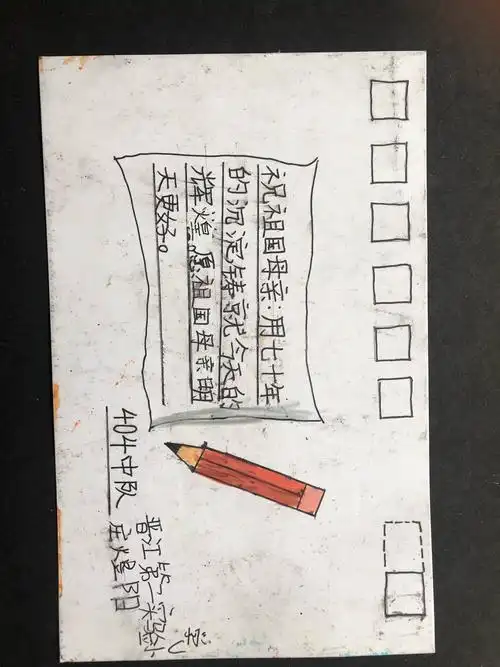 祝祖国母亲:用七十年
的沉淀铸就今天的
辉煌,愿祖国母亲明
天更好。
404中队
晋江第实验小
学